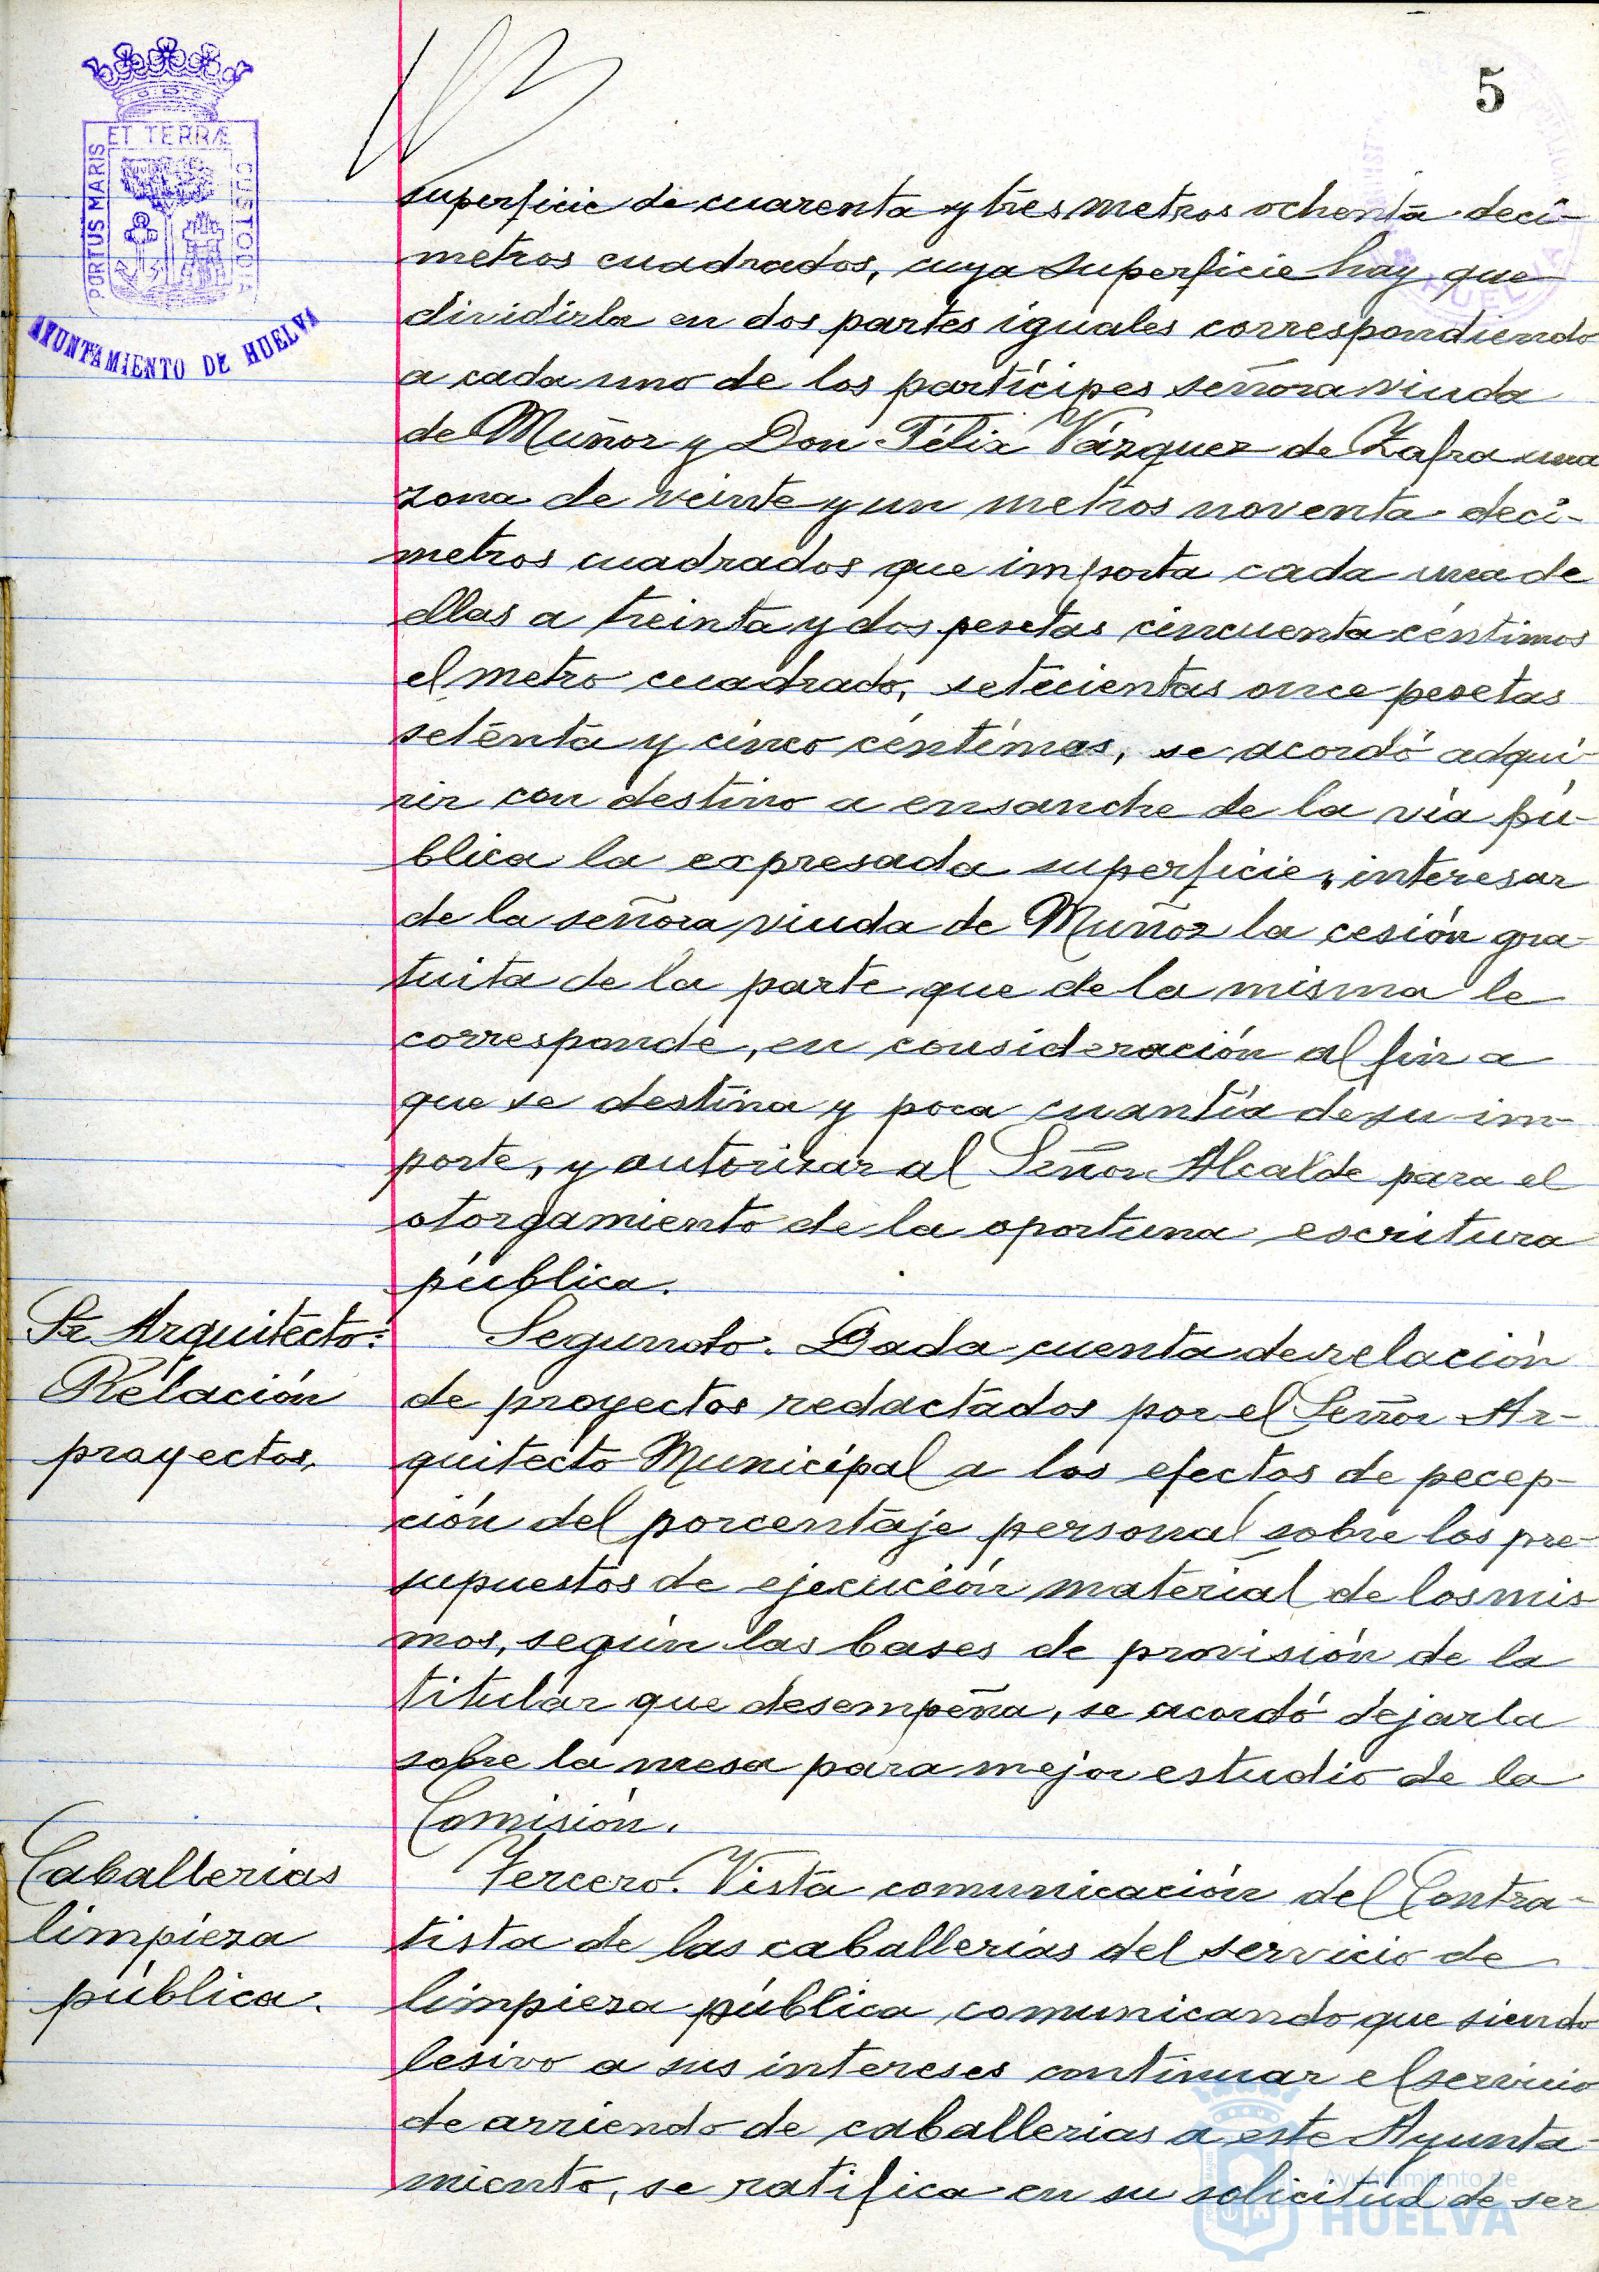 5
ET TERRÆ
PORTUS MARIS
CUSTODIA
AYUNTAMIENTO DE HUELVA
superficie de cuarenta y tres metros ochenta decí-
metros cuadrados, cuya superficie hay que
dividirla en dos partes iguales correspondiendo
a cada uno de los partícipes señora viuda
de Muñoz y Don Félix Vázquez de Zafra una
zona de veinte y un metros noventa decí-
metros cuadrados que importa cada una de
ellas a treinta y dos pesetas cincuenta céntimos
el metro cuadrado, setecientas once pesetas
setenta y cinco céntimos, se acordó adqui-
rir con destino a ensanche de la vía pú-
blica la expresada superficie, interesar
de la señora viuda de Muñoz la cesión gra-
tuita de la parte que de la misma le
corresponde, en consideración al fin a
que se destina y poca cuantía de su im-
porte, y autorizar al Señor Alcalde para el
otorgamiento de la oportuna escritura
pública.
Sr. Arquitecto:
Relación
proyectos.
Segundo. Dada cuenta de relación
de proyectos redactados por el Señor Ar-
quitecto Municipal a los efectos de pecep-
ción del porcentaje personal sobre los pre-
supuestos de ejecución material de los mis-
mos, según las bases de provisión de la
titular que desempeña, se acordó dejarla
sobre la mesa para mejor estudio de la
Comisión.
Caballerias
limpieza
pública.
Tercero. Vista comunicación del Contra-
tista de las caballerias del servicio de
limpieza pública comunicando que siendo
lesivo a sus intereses continuar el servicio
de arriendo de caballerias a este Ayunta-
miento, se ratifica en su solicitud de ser
Ayuntamiento de
HUELVA